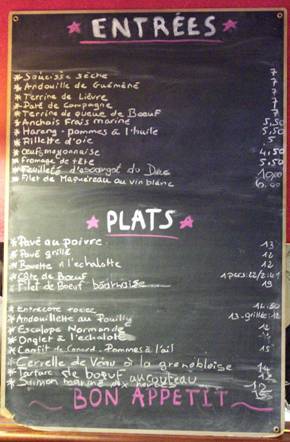 ENTRÉES
* Saucisse sèche 7
* Andouille de Guémené 7
* Terrine de Lièvre 7
* Paté de Campagne 7
* Terrine de queue de Boeuf 7
* Anchois Frais mariné 5,50
* Hareng - pommes à l'huile 5,50
* Rillette d'oie 5
* Oeuf mayonnaise 4,50
* Fromage de tête 5,50
* Feuilleté d'escargot du 10,00
* Filet de Maquereau au vin blanc
PLATS
* Pavé au poivre 13
* Pavé grillé 12
* Bavette à l'échalotte 12
* Côte de Boeuf 1 pers.
* Filet de Boeuf béarnaise 19
* Entrecôte 14.50
* Andouillette au Pouilly 13
* Escalope Normande
* Onglet à l'échalote
* Confit de Canard - Pommes à l'ail 15
* Cervelle de Veau à la grenobloise
* Tartare de boeuf au couteau
* Saumon
BON APPETIT